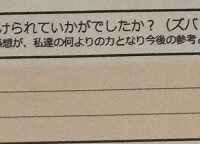 けられていかがでしたか？（ズバ
感想が、私達の何よりの力となり今後の参考